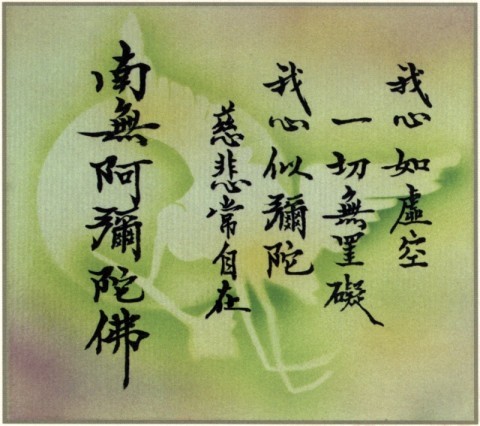 我心如虛空
一切無罣礙
我心似彌陀
慈悲常自在
南無阿彌陀佛